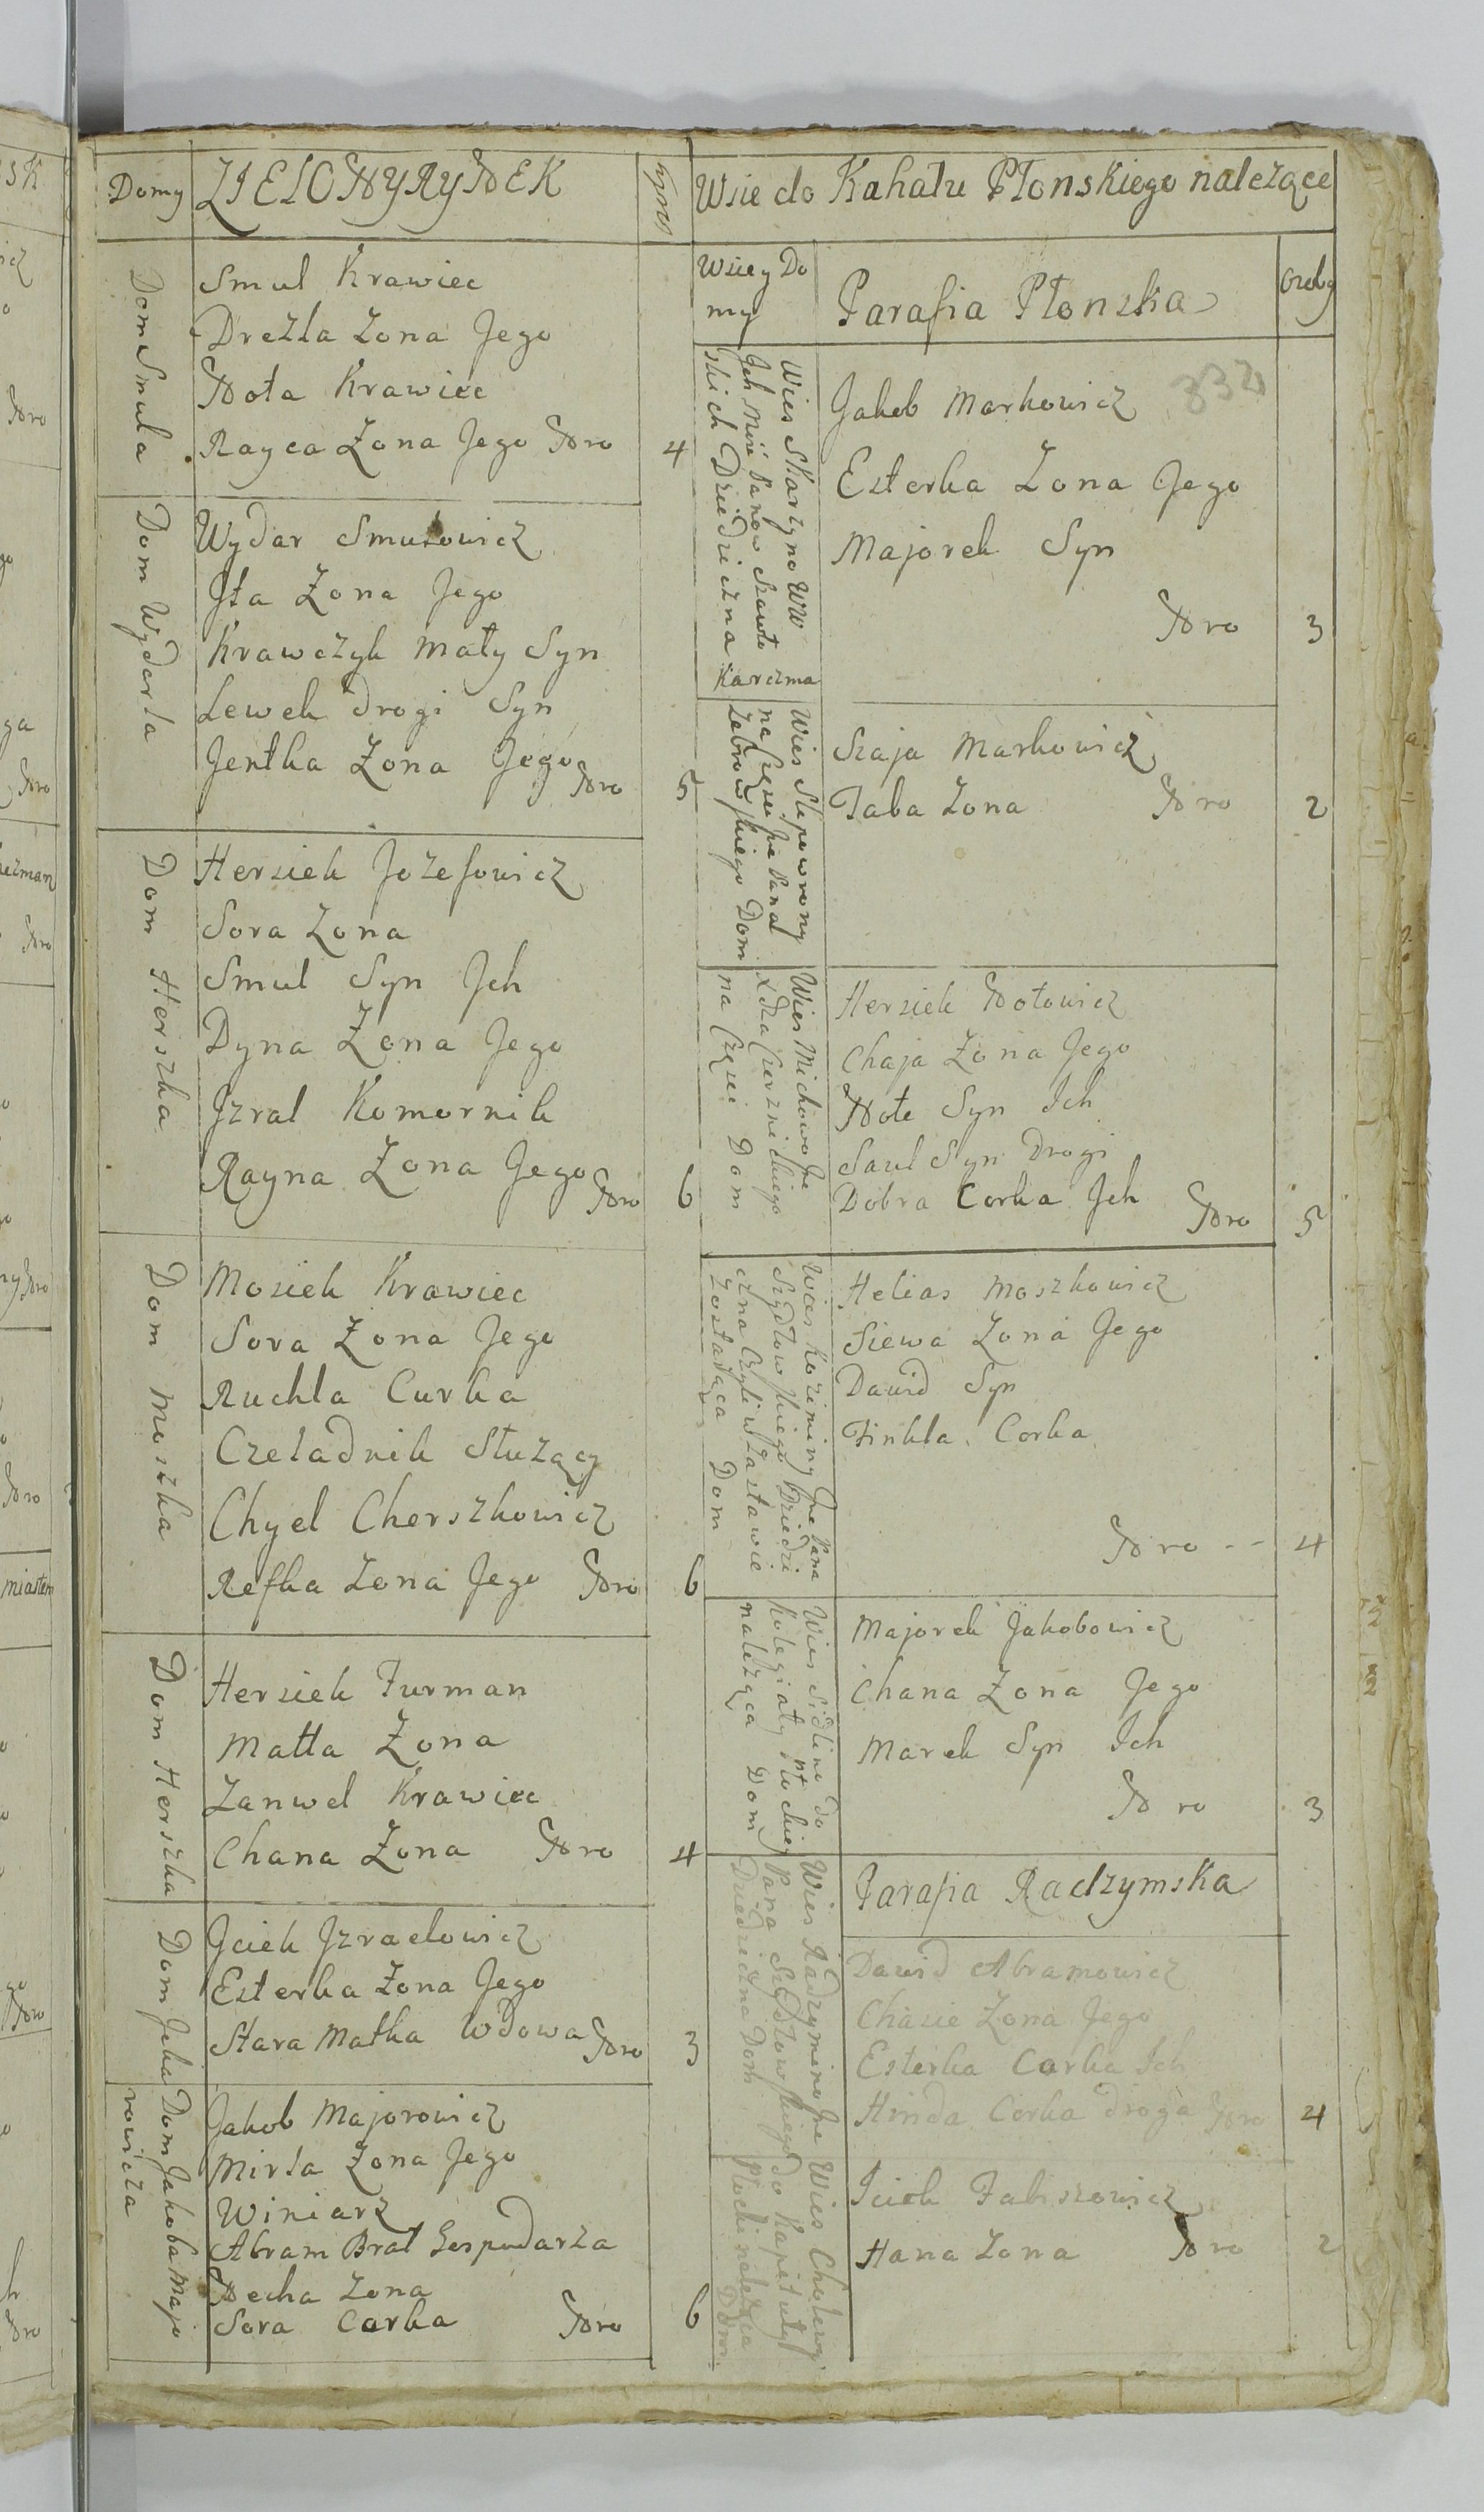 Domy
ZIELONY RYNEK
Wsie do Kahału Płonskiego należące
Dom Smula
Smul Krawiec
Drezla Zona Jego
Nota Krawiec
Rayca Zona Jego Nro 4
Dom Wydarla
Wydar Smulowicz
Jta Zona Jego
Krawczyk mały Syn
Lewek drogi Syn
Jentka Zona Jego Nro 5
Dom Herszka
Hersiek Jozefowicz
Sora Zona
Smul Syn Jch
Dyna Zona Jego
Jzral Komornik
Rayna Zona Jego Nro 6
Dom Moszka
Mosiek Krawiec
Sora Zona Jego
Ruchla Curka
Czeladnik Służący
Chyel Cherszkowicz
Refka Zona Jego Nro 6
Dom Herszka
Hersiek Furman
Matla Zona
Zanwel Krawiec
Chana Zona Nro 4
Dom Jcka
Jciek Jzraelowicz
Esterka Zona Jego
Stara Matka Wdowa Nro 3
Dom Jakoba Majo
rowicza
Jakob Majorowicz
Mirla Zona Jego
Winiarz
Abram Brat Gospodarza
Necha Zona
Sora Corka Nro 6
Wsiey Do
my
Parafia Płonska
Osoby
832
Wies Skarzyno WW
Jch Mść Panow
skich Dziedziczna
Karczma
Jakob Markowicz
Esterka Zona Jego
Majorek Syn
Nro 3
Wies Slepowrony
na Częsci Jne Pana
Zebrowskiego Dom
Szaja Markowicz
Taba Zona Nro 2
Wies Michowo Jne
Xdza Czerznickiego
na Częsci Dom
Hersiek Notowicz
Chaja Zona Jego
Note Syn Ich
Saul Syn Drogi
Dobra Corka Jch Nro 5
Wies Koziminy Jne Pana
Szydłowskiego Dziedzi
czna Czyli w Zastawie
Zostaiąca Dom
Helias Moszkowicz
Siewa Zona Jego
Dawid Syn
Finkla Corka
Nro -- 4
Wies Sidlino do
Kolegiaty Płockiey
należąca Dom
Majorek Jakobowicz
Chana Zona Jego
Marek Syn Ich
Nro 3
Parafia Radzymska
Wies Radzymino Jne
Pana Szydłowskiego
Dziedziczna Dom
Dawid Abramowicz
Chasie Zona Jego
Esterka Corka Ich
Hinda Corka droga Nro 4
Wies Cholewy
do Kapituły
Płocki należąca
Dom
Iciek Fabiszowicz
Hana Zona Nro 2